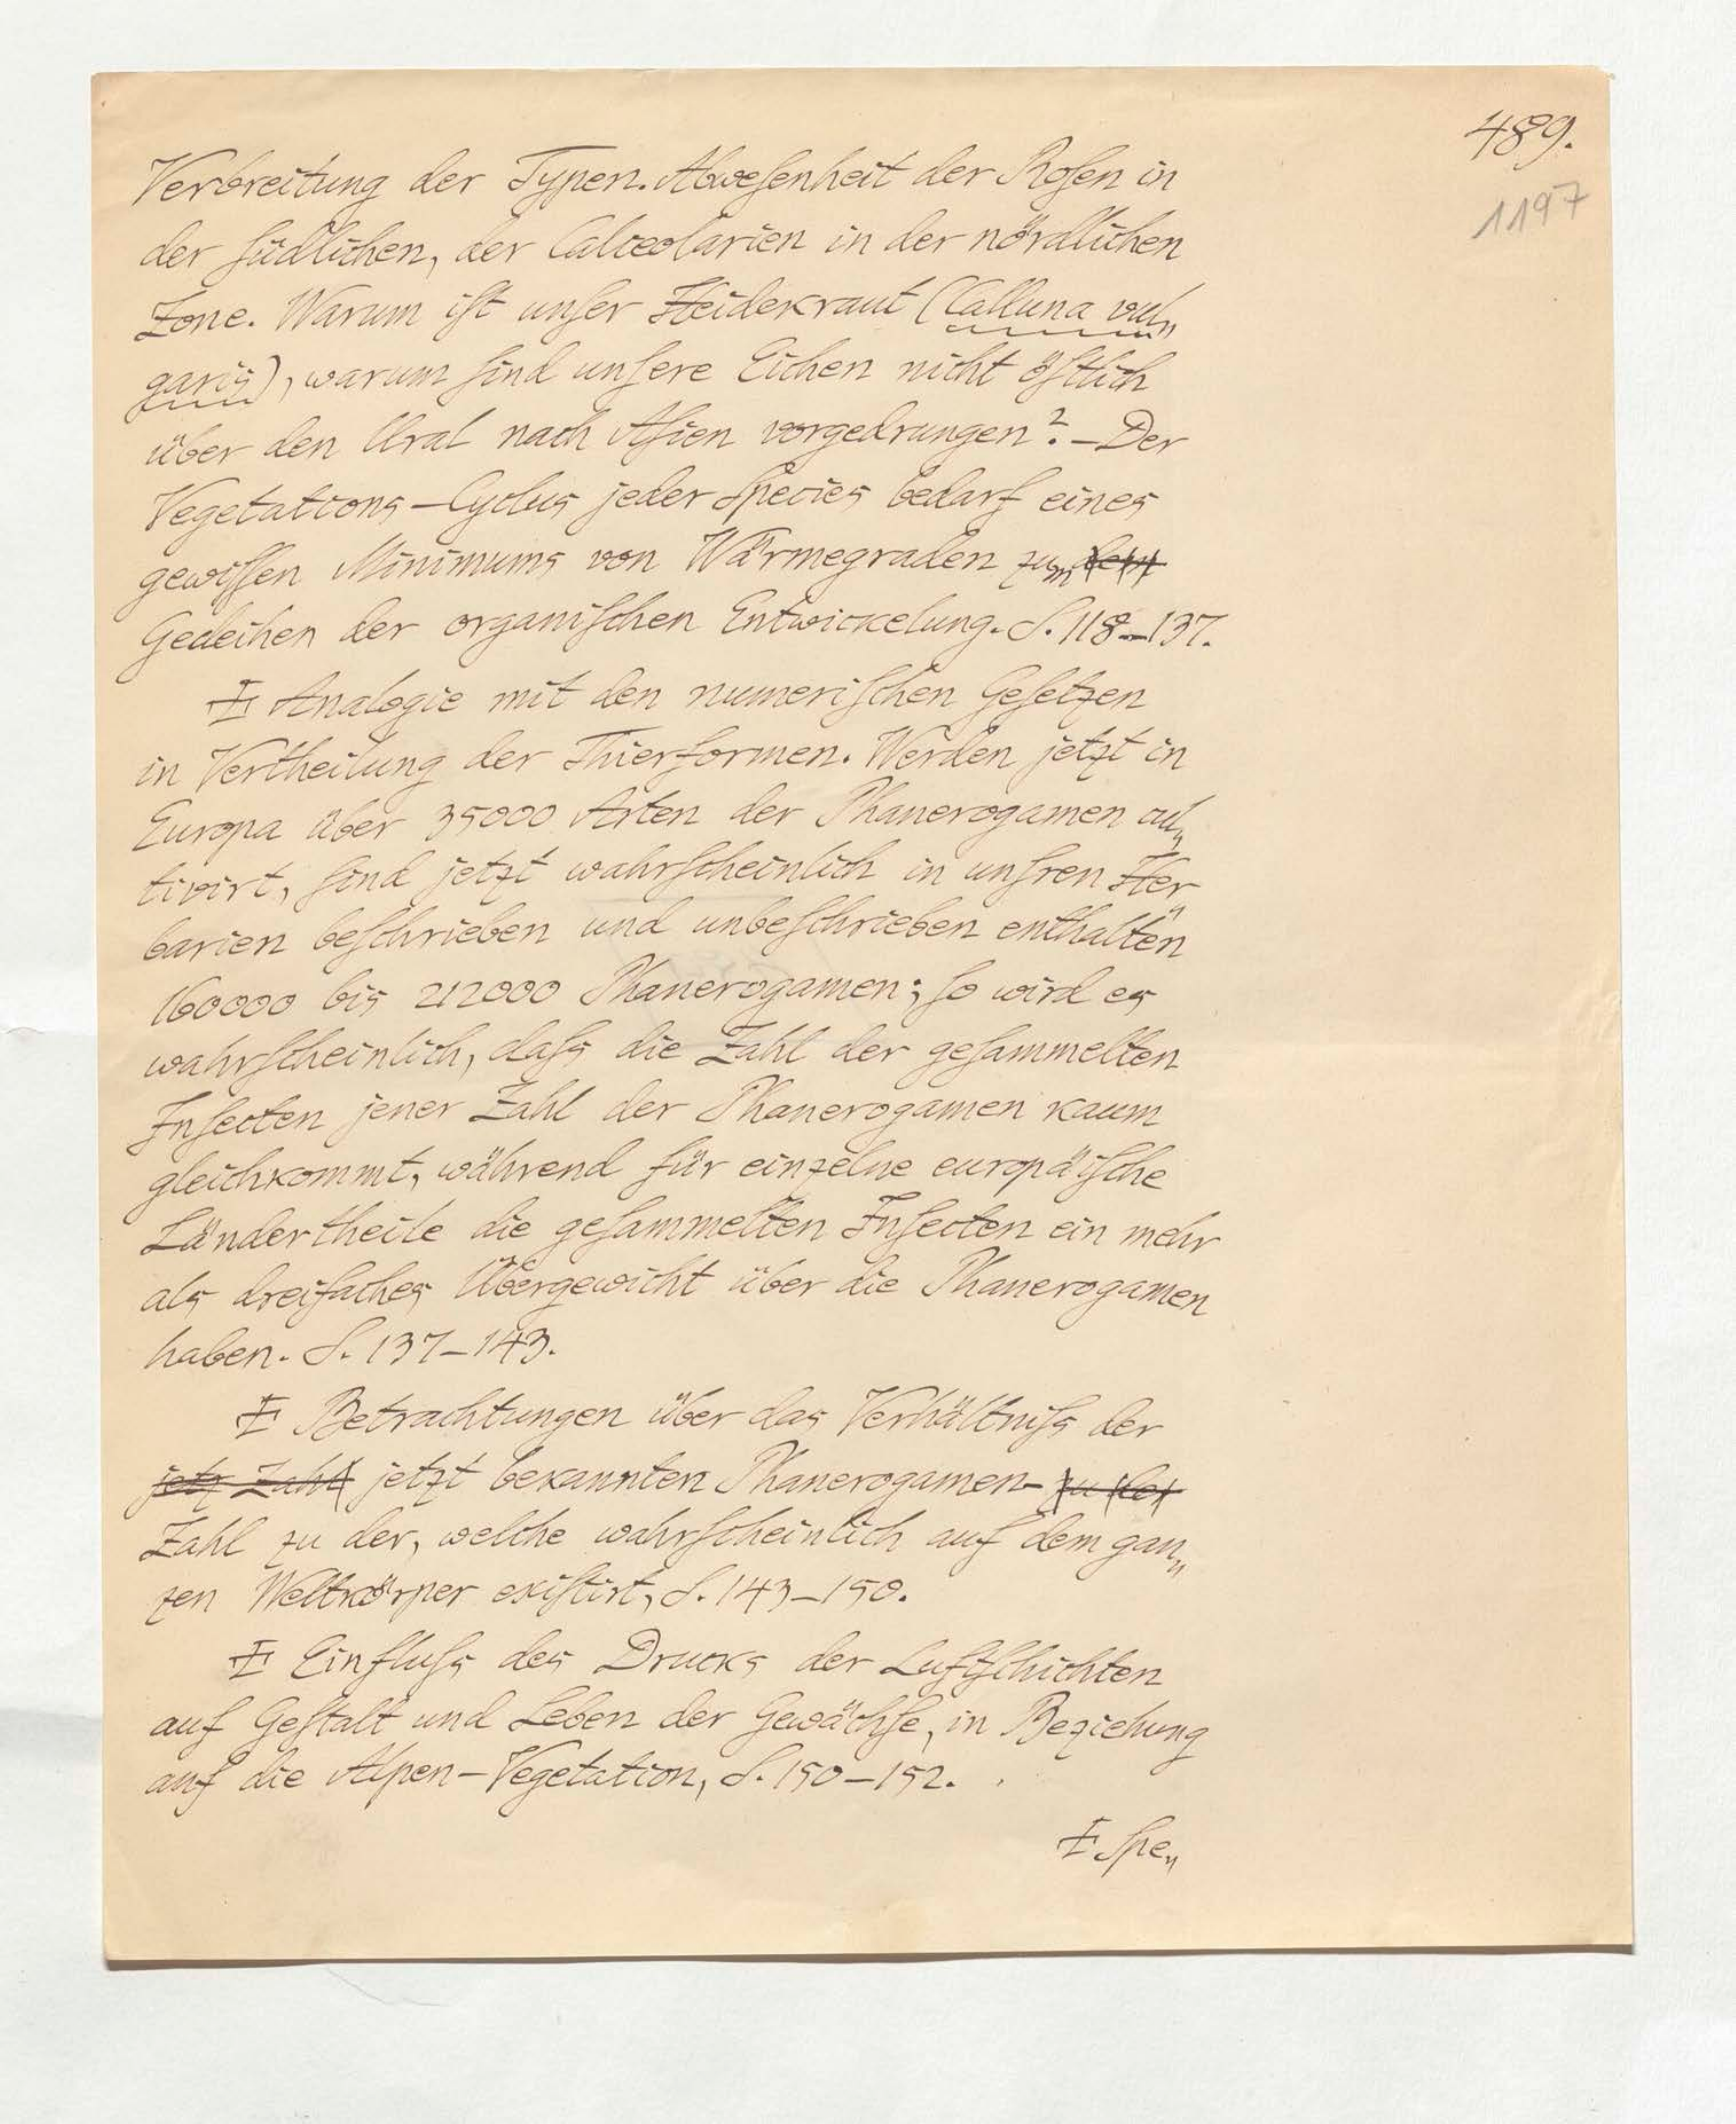 489.
1197
Verbreitung der Typen. Abweſenheit der Roſen in
der ſüdlichen, der Calceolarien in der nördlichen
Zone. Warum iſt unſer Heidekraut (Calluna vul„
garis), warum ſind unſere Eichen nicht öſtlich
über den Ural nach Aſien vorgedrungen? – Der
Vegetations-Cyclus jeder Species bedarf eines
gewiſſen Minimums von Wärmegraden zum dem
Gedeihen der organiſchen Entwickelung. S. 118–137.
Ⅰ Analogie mit den numeriſchen Geſetzen
in Vertheilung der Thierformen. Werden jetzt in
Europa über 35000 Arten der Phanerogamen cul„
tivirt, ſind jetzt wahrſcheinlich in unſren Her„
barien beſchrieben und unbeſchrieben enthalten
160000 bis 212000 Phanerogamen; ſo wird es
wahrſcheinlich, daſs die Zahl der geſammelten
Inſecten jener Zahl der Phanerogamen kaum
gleichkommt, während für einzelne europäiſche
Ländertheile die geſammelten Inſecten ein mehr
als dreifaches Übergewicht über die Phanerogamen
haben. S. 137–143.
Ⅰ Betrachtungen über das Verhältniſs der
jetz Zahl jetzt bekannten Phanerogamen- zu der
Zahl zu der, welche wahrſcheinlich auf dem gan„
zen Weltkörper exiſtirt, S. 143–150.
Ⅰ Einfluſs des Drucks der Luftſchichten
auf Geſtalt und Leben der Gewächſe, in Beziehung
auf die Alpen-Vegetation, S. 150–152.
Ⅰ Spe„